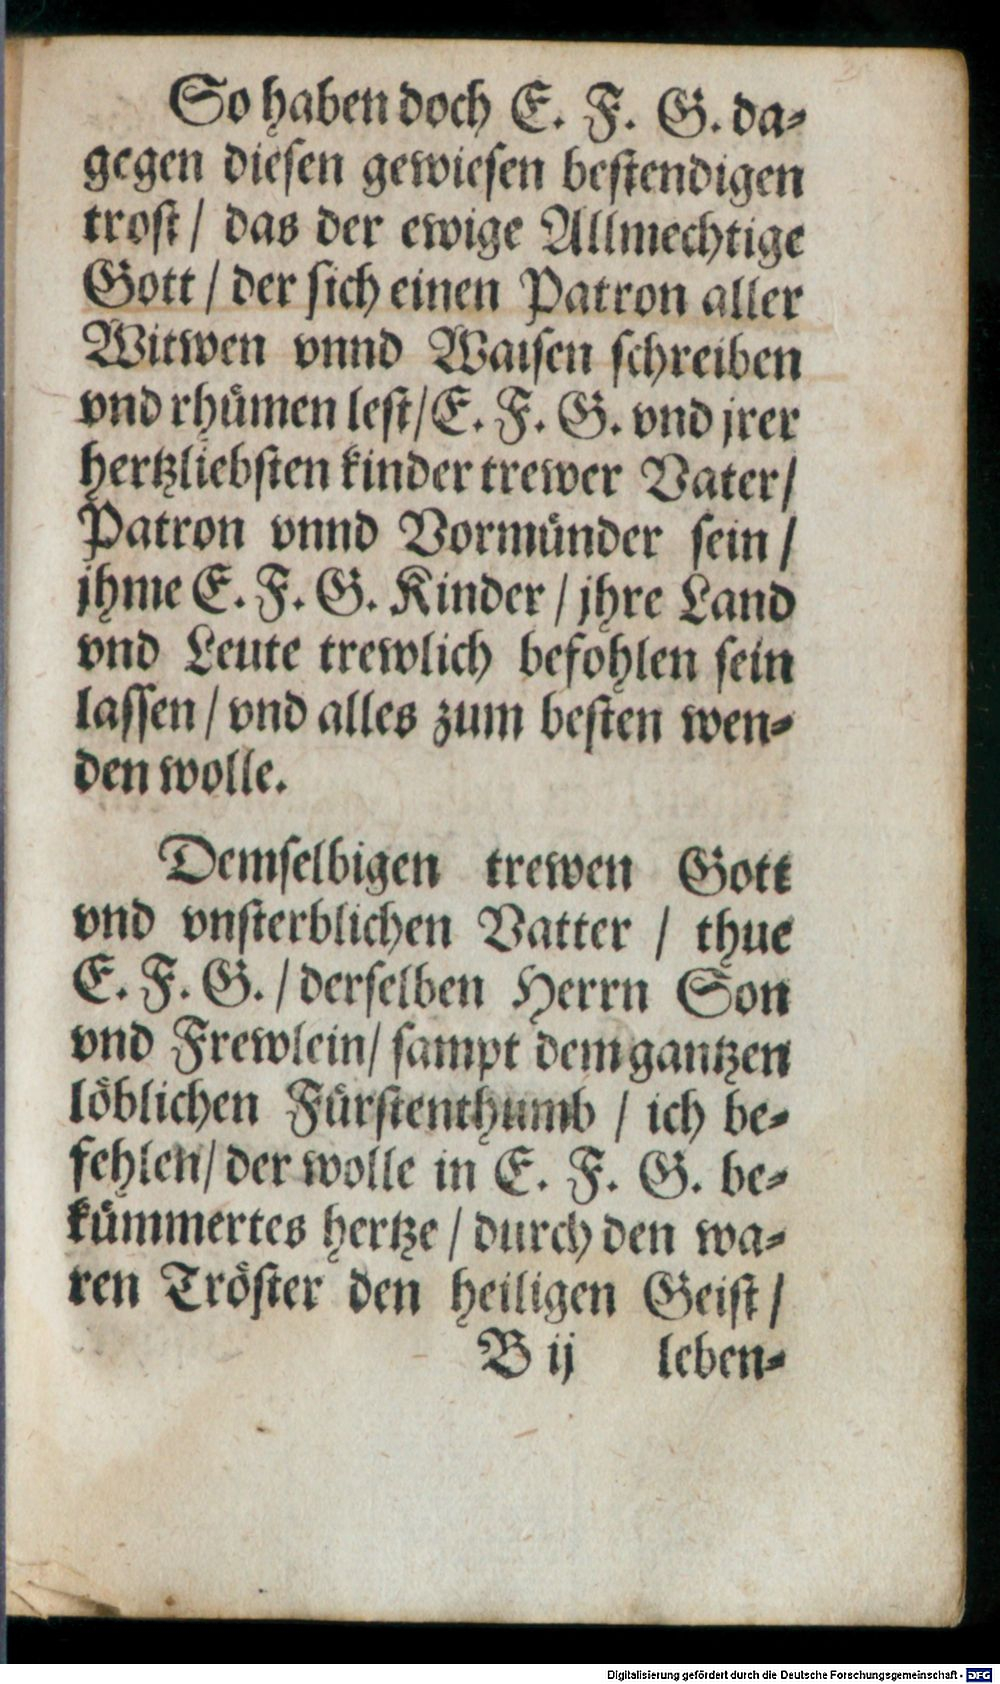 So haben doch E. F. G. da-
gegen diesen gewiesen bestendigen
trost / das der ewige Allmechtige
Gott / der sich einen Patron aller
Witwen vnnd Waisen schreiben
vnd rhümen lest / E. F. G. vnd jrer
hertzliebsten kinder trewer Vater /
Patron vnnd Vormünder sein /
jhme E. F. G. Kinder / jhre Land
vnd Leute trewlich befohlen sein
lassen / vnd alles zum besten wen-
den wolle.
Demselbigen trewen Gott
vnd vnsterblichen Vatter / thue
E. F. G. / derselben Herrn Son
vnd Frewlein / sampt dem gantzen
löblichen Fürstenthumb / ich be-
fehlen / der wolle in E. F. G. be-
kümmertes hertze / durch den wa-
ren Tröster den heiligen Geist /
B ij leben-
Digitalisierung gefördert durch die Deutsche Forschungsgemeinschaft - DFG